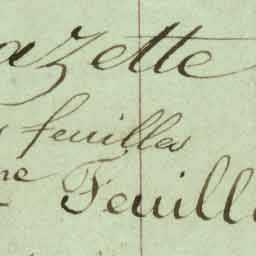 azette
feuilles
ne Feuill